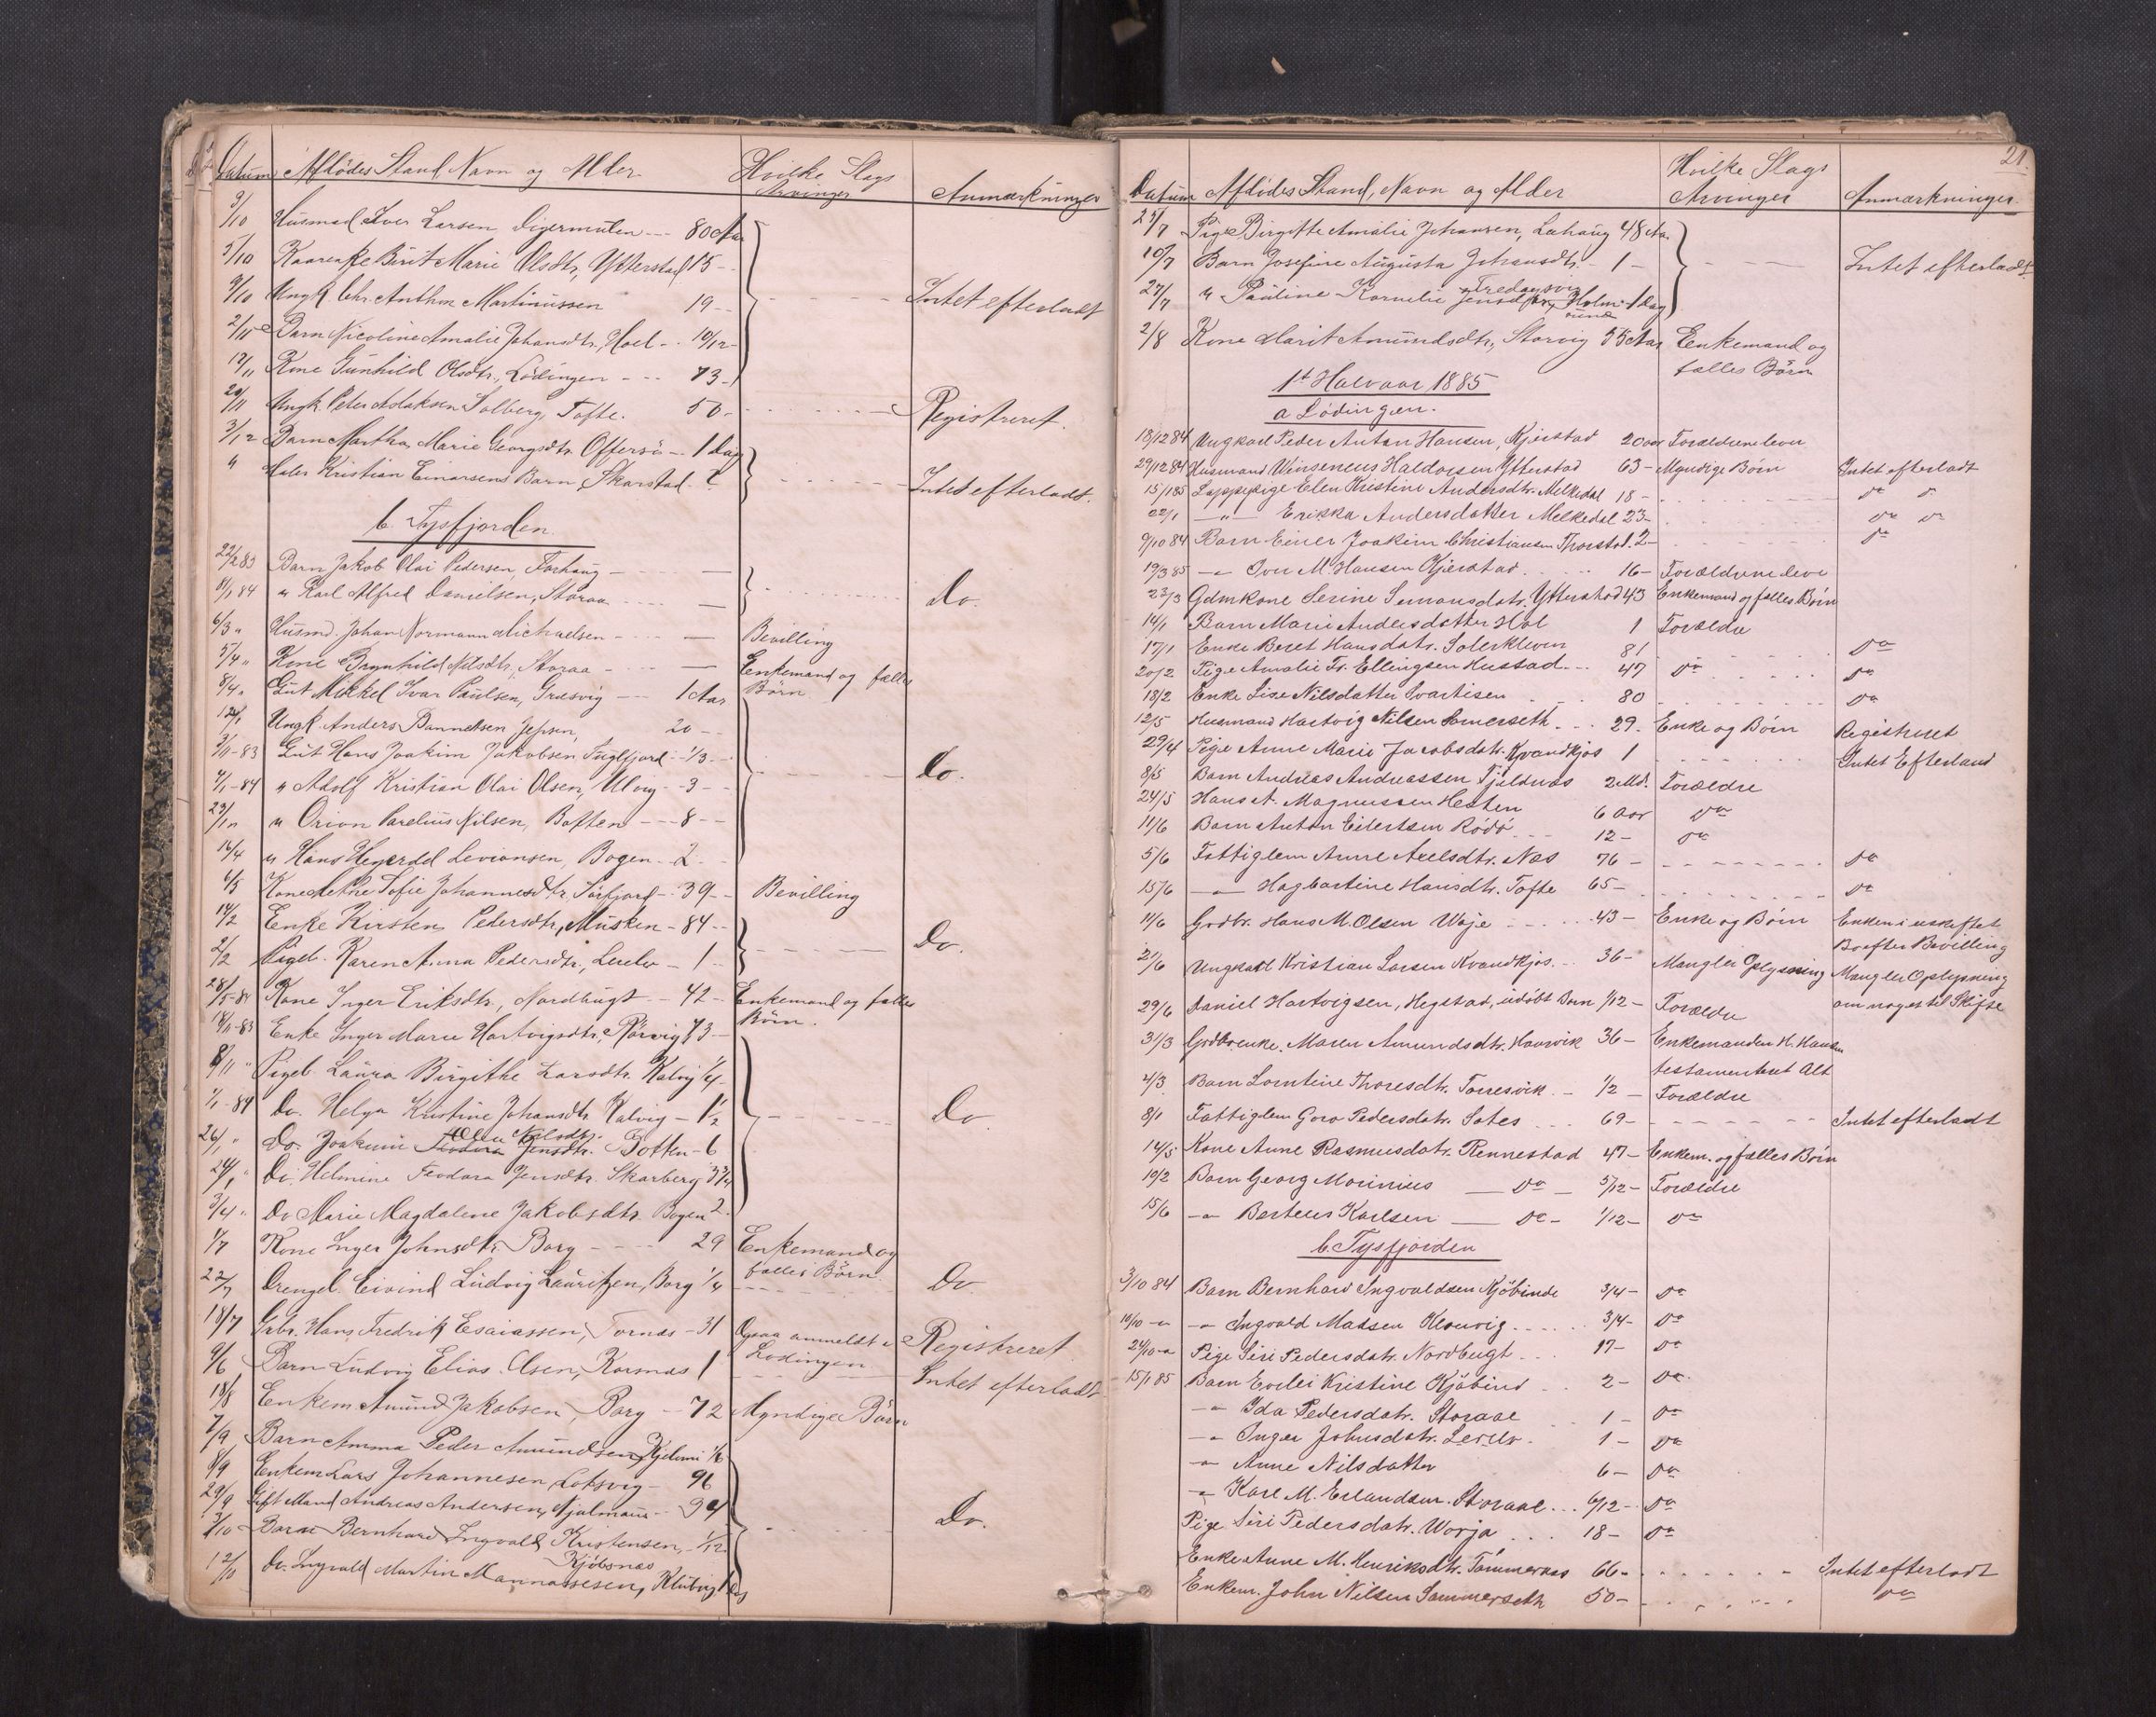 Datum Afdødes Stand Navn og Alder Hvilke Slags Arvinger Anmærkninger
3/10 Husmad Iver Larsen Digermulen --- 80 Aar
5/10 Berit Marie Olsdtr, Ytterstad 15 -
9/10 Ungk. Chr. Anthon Martinussen 19 -- Intet efterladt
2/11 Barn Nicoline Amalie Johansdtr, Hoel - 10/12 -
12/11 Kone Gunhild Olsdtr, Lödingen --- 73 -
20/11 Ungk. Peter Aslaksen Solberg, Tofte. 50 - Registreret.
3/12 Barn Martha Marie Georgsdtr Offersö - 1 Dag
" Kristian Einarsens Barn, Skarstad ? Intet efterladt.
b. Tysfjorden
22/2 83 Barn Jakob Olai Pedersen, Forhaug
84 " Karl Alfred Danielsen, Storaa Do.
6/3 " Husmd. Johan Normann Michaelsen Bevilling
5/4 " Kone Brynhild Nilsdtr, Storaa Enkemand og fælles
8/4 " Gut Mikkel Ivar Paulsen, Græsvig 1 Aar Børn
Ungk. Anders Jepsen, 20 -
83 Gut Hans Joakim Jakobsen Fuglfjord 1/3 Do.
4/1 - 84 " Adolf Kristian Olai Olsen, Ulvig 3 -
29/1 " " Orion Parelius Nilsen, Botten --- 8 --
16/4 " Hans Heyerdal Leviansen, Bogen - 2
6/5 Kone Sofie Johannesdtr, Sørfjord - 39 - Bevilling
14/2 Enke Kirsten Pedersdtr, Musken - 84 -
2/2 Pigeb. Karen Anna Pedersdtr, - 1 - Do.
28/5 - 84 Kone Inger Eriksdtr, Nordbugt - 42 - Enkemand og fælles
18/11 - 83 Enke Inger Marie Hartvigsdtr, Rörvig 73 - Børn.
8/11 " Pigeb. Laura Birgithe Larsdtr Kalvig 1/4 -
1/1 - 84 Do. Helga Kristine Johansdtr Kalvig - 1 1/2 Do.
26/1 " Do. Joakime Ellen Nilsdtr. Botten - 6
24/1 " Do. Helmine Teodora Jensdtr Skarberg 3 3/4
3/4 " Do Marie Magdalene Jakobsdtr Bogen 2
1/7 Kone Inger Johnsdtr Borg --- 29 Enkemand og
22/7 Drengeb. Eivind Ludvig Lauritzen, Borg 1/4 fælles Børn. Do
18/7 Grbr. Hans Fredrik Esaiassen, Tornæs - 31 Ogsaa anmeldt i Registreret
9/6 Barn Ludvig Elias Olsen, Korsnæs 1 Lødingen Intet efterladt
18/8 Enkem. Amund Jakobsen, Borg - 72 Myndige Børn
7/9 Barn Amma Peder Amundsen, 1/6
8/9 Enkem Lars Johannesen Lotsvig - 96
29/9 Gift Mand Andreas Andersen, 39 Do.
3/10 Barn Bernhard Ingvald Kristensen, - 1/12
Kjöbsnæs
12/10 Do. Ingvald Martin Mannassesen, Kluvig 1 Dag
21.
Datum Afdødes Stand, Navn og Alder Hvilke Slags Arvinger Anmærkninger.
25/7 Pige Birgitte Amalie Johansen, Lahaug 48 Aar
10/7 Barn Josefine Augusta Johansdtr. - 1 - Intet efterladt
27/7 " Pauline Kornelie Fredagsvig Holm- 1 Dag
sund
2/8 Kone Marit Amundsdtr, Storvig 55 Aar Enkemand og
fælles Börn
1ste Halvaar 1885
a Lödingen.
18/12 84 Ungkarl Peder Anton Hansen, Kjerstad 20 aar Forældrene lever
29/12 84 Husmand Winseneus Haldorsen Ytterstad 63 - Myndige Börn Intet efterladt
15/1 85 Lappepige Elen Kristine Andersdtr. Melkedal 18 - Do Do
22/1 - " - Erikka Andersdatter Melkedal 23 - Do Do
9/10 84 Barn Einer Joakim Christiansen Thorstad. 2 - Do
19/3 85 - " Iver M. Hansen Kjerstad 16 - Forældrene leve
23/3 Gdmkone Serine Simonsdatr. Ytterstad 43 Enkemand og fælles Börn
14/1 Barn Marie Andersdatter Hol 1 Forældre
17/1 Enke Beret Hansdatr. Solerkleven 81 Do
20/2 Pige Amalie Fr. Ellingsen Hustad 47 Do Do
18/2 Enke Lise Nilsdatter Svartisen 80 Do
12/5 Husmand Hartvig Nilsen Somerseth 29. Enke og Börn Registreret
29/4 Pige Anne Marie Jacobsdatr. Kvandkjos 1 Intet Efterland
8/5 Barn Andreas Andreassen Fjeldnæs 2 Md. Forældre
24/5 Hans A. Magnussen Hesten 6 Aar Do
11/6 Barn Anton Eilertsen Rödö 12 - Do
5/6 Fattiglem Anne Axelsdtr. Næs 76 - Do
15/6 - " Hagbartine Hansdtr. Tofte 65 - Do
11/6 Grdbr. Hans M. Olsen Vaje 43 - Enke og Börn Enken i uskiftet
Bo efter Bevilling
2/6 Ungkarl Kristian Larsen Kvandkjos 36 - Mangler Oplysning Mangler Oplysning
om noget til Skifte
29/6 Daniel Hartvigsen, Hegstad, udöbt Barn 1/12 - Forældre
31/3 Maren Amundsdtr. Haarvik 36 - Enkemanden H. Hansen
testamenteret Alt
4/3 Barn Lorntine Thoresdtr. Torresvik - 1/2 - Forældre
8/1 Fattiglem Goro Pedersdatr. Sotes 69 - Intet efterladt
14/5 Kone Anne Rasmusdatr. Rennestad 47 - Enkem. og fælles Börn
10/2 Barn Georg Morinius - Do - 5/12 - Forældre
15/6 - " Berteus Karlsen - Do - 1/12 - Do
b. Tysfjorden
3/10 84 Barn Bernhard Ingvaldsen Kjöbinde 3/4 - Do
10/10 - " - " Ingvald Madsen Kloevig 3/4 - Do
24/10 - " Pige Siri Pedersdatr. Nordbugt 17 - Do
15/1 85 Barn Kristine Kjöbind 2 - Do
- " Ida Pedersdatr. Storaae 1 - Do
- " Inger Johnsdatr. 1 - Do
- " Anne Nilsdatter 6 - Do
- " Karl M. Erlandsen. Storaae 6/12 - Do
Pige Siri Pedersdatr. Worja 18 - Do
Enke Anne M. Henriksdtr. Tömmernæs 66 - Intet efterladt
Enkem. John Nilsen Sommerseth 50 - Do